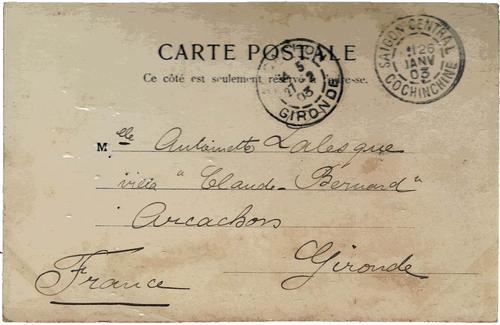 CARTE POSTALE
Ce côté est seulement réservé à l'adresse.
SAIGON CENTRAL
26
JANV
03
COCHINCHINE
5
27 2
03
GIRONDE
Mlle Antoinette Lalesque
villa "Claude-Bernard"
Arcachon
Gironde
France